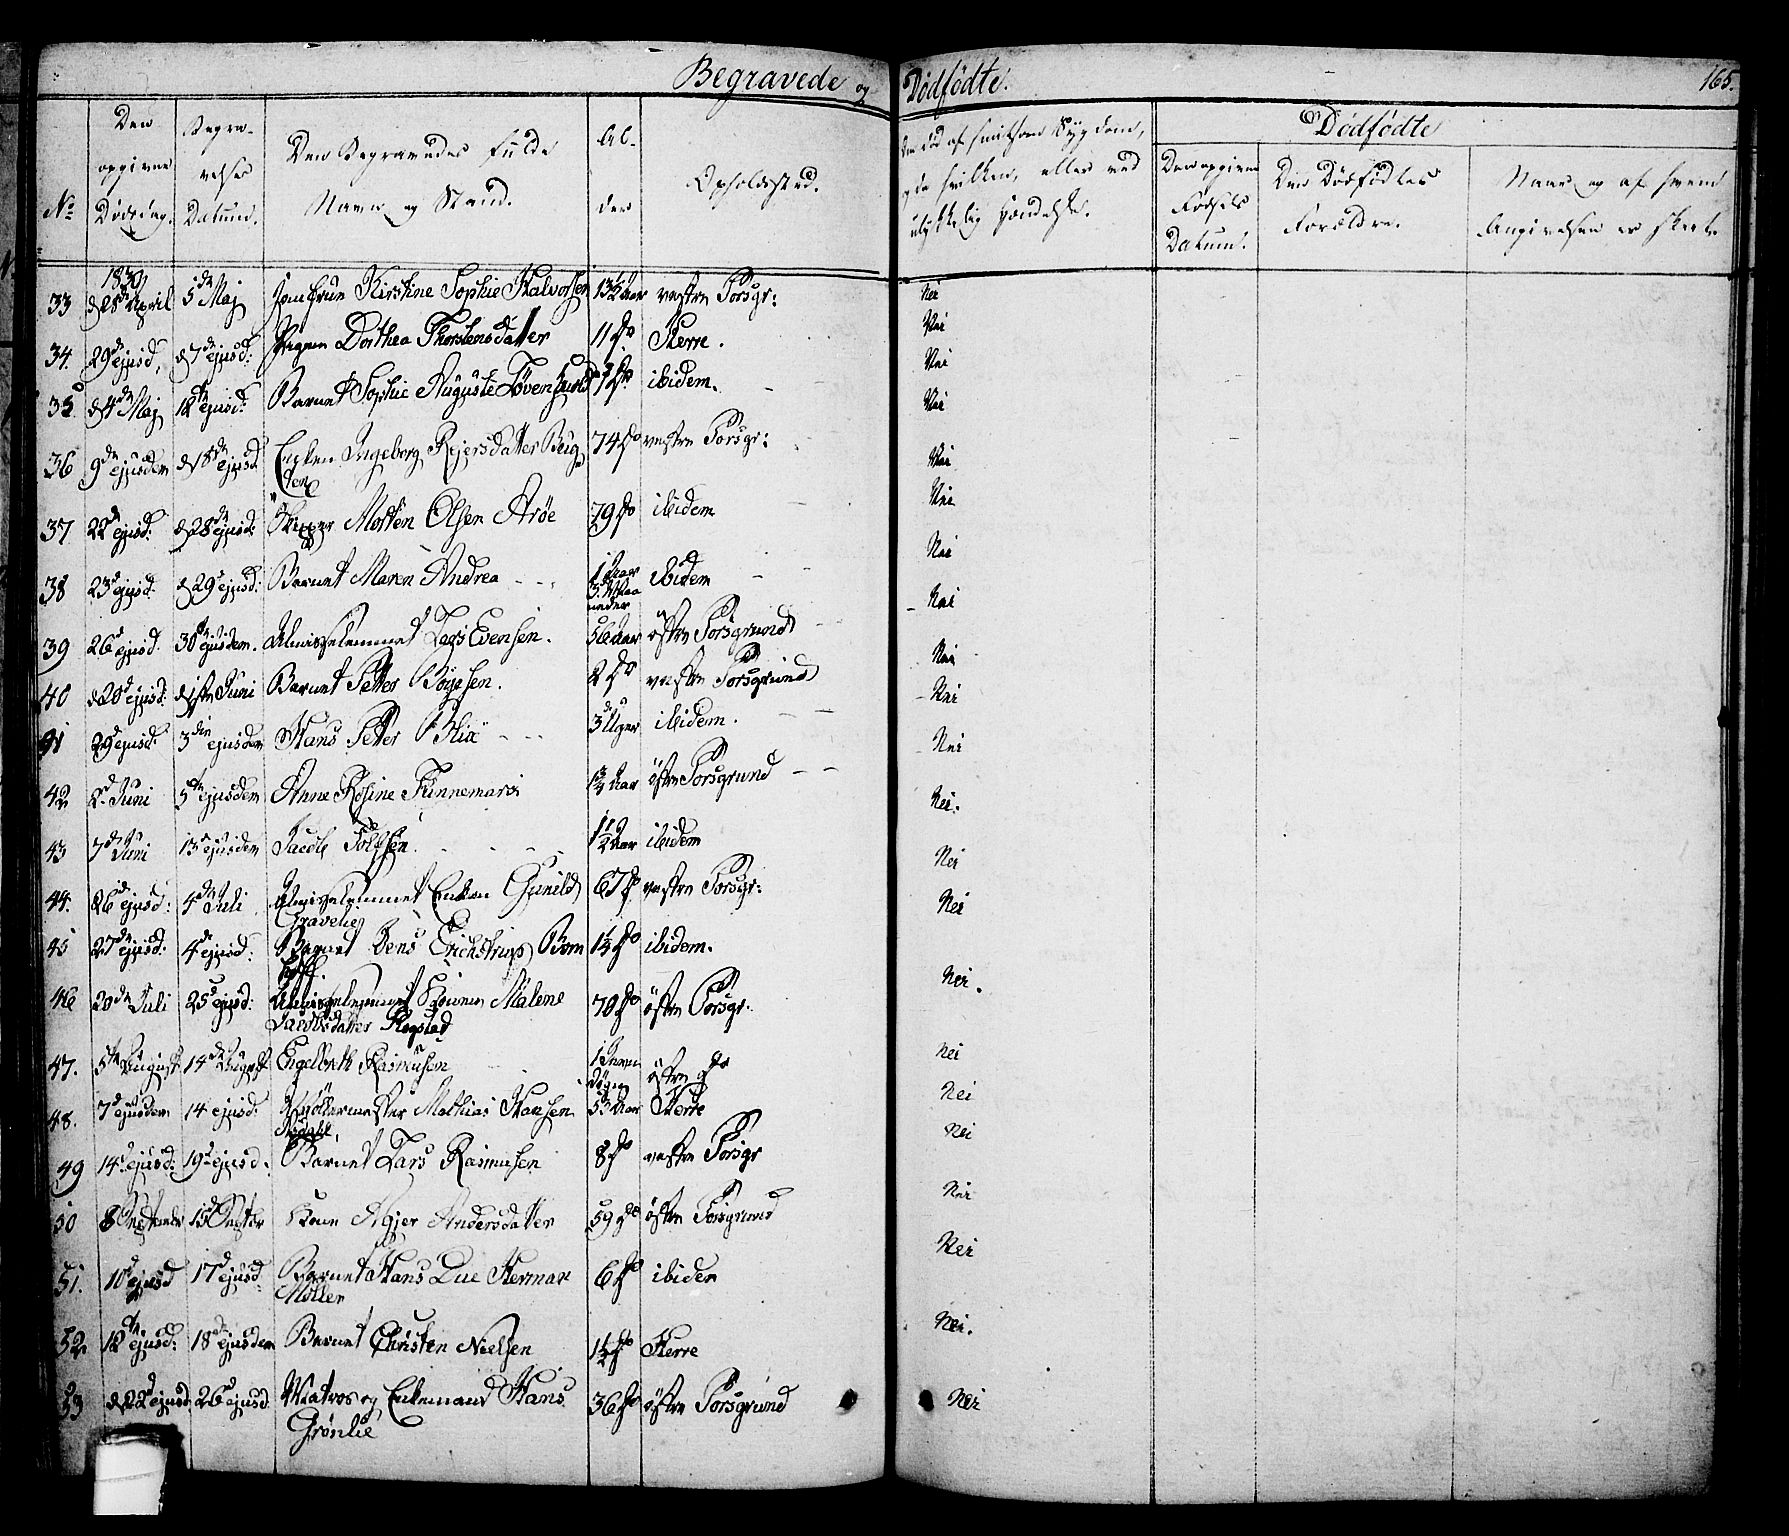 Begravede og Dødfødte.
165.
No
Den opgivne Dødsdag.
Begravelses Datum.
Den Begravedes fulde Navn og Stand.
Alder
Opholdssted.
Om død af smitsom Sygdom, og da hvilken, eller ved ulykkelig Hændelse.
Dødfødte
Den opgivne Fødsels Datum.
Den Dødfødtes Forældre.
Naar og af hvem Angivelsen er skeet.
1830
33 d 28de April 5de Maj Jomfrue Kirstine Sophie Halvorsen 13½ Aar vestre Porsgr: Nei
34. 29de ejusd, d 7de ejusd: Pigen Dorthea Thorstensdatter 11 do Herre. Nei
35 d 4de Maj 12te ejusd: Barnet Sophie Auguste Løvenskiold do ibidem. Nei
36 9de ejusdem d 18de ejusd Enken Ingeborg Rejersdatter Bugden 74 do vestre Porsgr: Nei
37 22d ejusd: d 28de ejusd: Skipper Morten Olsen Arøe 79 do ibidem Nei
38 23d ejusd. d 29d ejusd: Barnet Maren Andrea 1 Aar 3 Maaneder ibidem Nei
39 26d ejusd. 30te ejusdem. Almisselemmet Lars Evensen. 56 Aar østre Porsgrund Nei
40 d 28d ejusd: d 1ste Juni Barnet Petter Boyesen. 2 do vestre Porsgrund Nei
41 29d ejusd: 3die ejusdem Hans Petter Blix 3 Uger ibidem. Nei
42 2d Juni 5te ejusdem Anne Rosine Finnemark ¾ Aar østre Porsgrund Nei
43 7de Juni 13d ejusdem Jacob Tolfsen. 1½ Aar ibidem Nei
44. 26d ejusd: 4de Juli Almisselemmet Enken Gunild Gravelie 67 do. vestre Porsgr: Nei
45 27de ejusd: 4de ejusd: Barnet Jens Erichstrup Bom 1¼ do ibidem. Nei
46 20de Juli 25d ejusd: Almisselemmet Konen Malene Jacobsdatter Rogstad 70 do østre Porsgr. Nei
47. 5te August 14de August Engelbreth Rasmussen 1 Døgn østre do Nei
48. 7d ejusdem 14 ejusd: Møllermester Mathias Hansen 53 Aar Herre Nei
49 14d ejusd: 19d ejusd. Barnet Lars Rasmussen 8 do vestre Porsgr Nei
50 8 Septembr 15d Septbr Kone Asjer Andersdatter 59 do østre Porsgrund Nei
51. 10d ejusd 17d ejusd. Barnet Hans Due Herman Møller 6 do ibidem Nei
52 12te ejusd: 18de ejusdem Barnet Christen Nielsen 1½ do Herre Nei.
53 d 22d ejusd 26d ejusd. Matros og Enkemand Hans Grønlie 36 do østre Porsgrund Nei